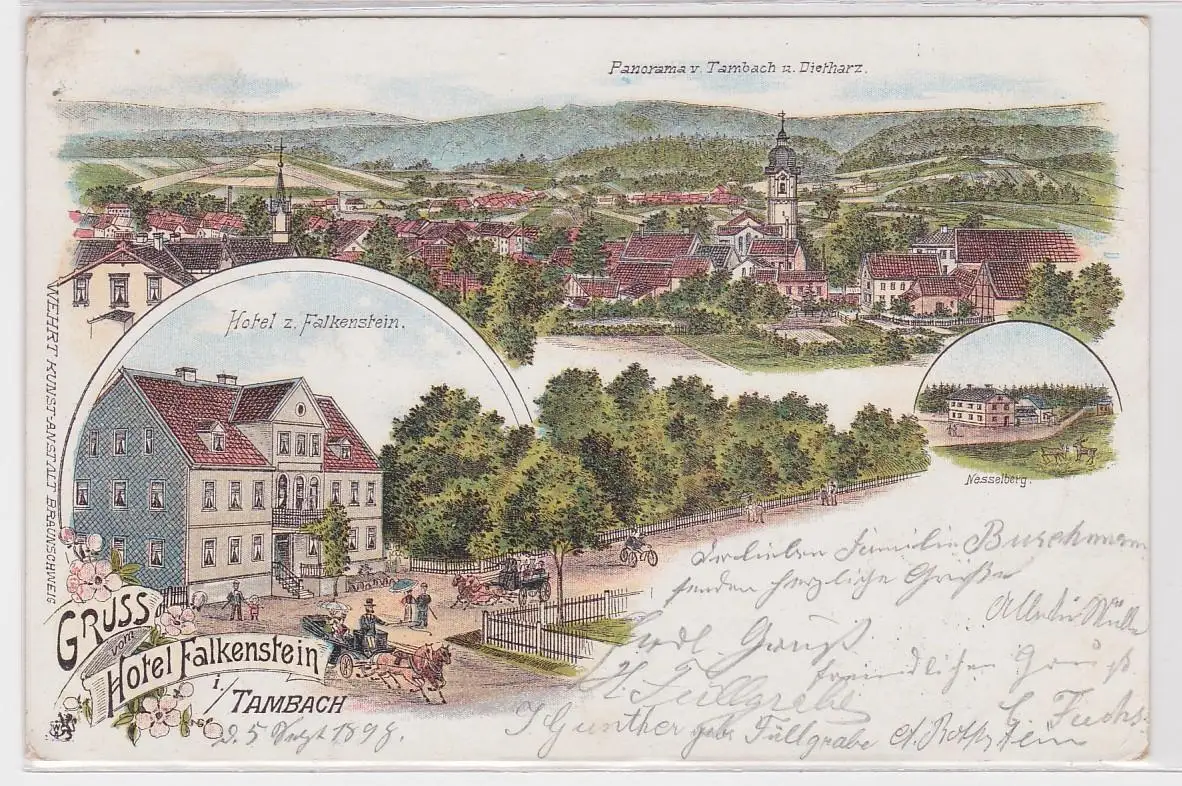 Panorama v. Tambach u. Dietharz.
Hotel z. Falkenstein.
Nesselberg.
WEHRT KUNST-ANSTALT BRAUNSCHWEIG
GRUSS
vom
Hotel Falkenstein
i./TAMBACH
d. 5 Sept 1898.
Der lieben Familie Buschmann
senden herzliche Grüße
Herzl. Gruß
freundlichen Gruß
H. Füllgrabe
C. Fuchs.
J Gunther geb. Füllgrabe A. Rothstein